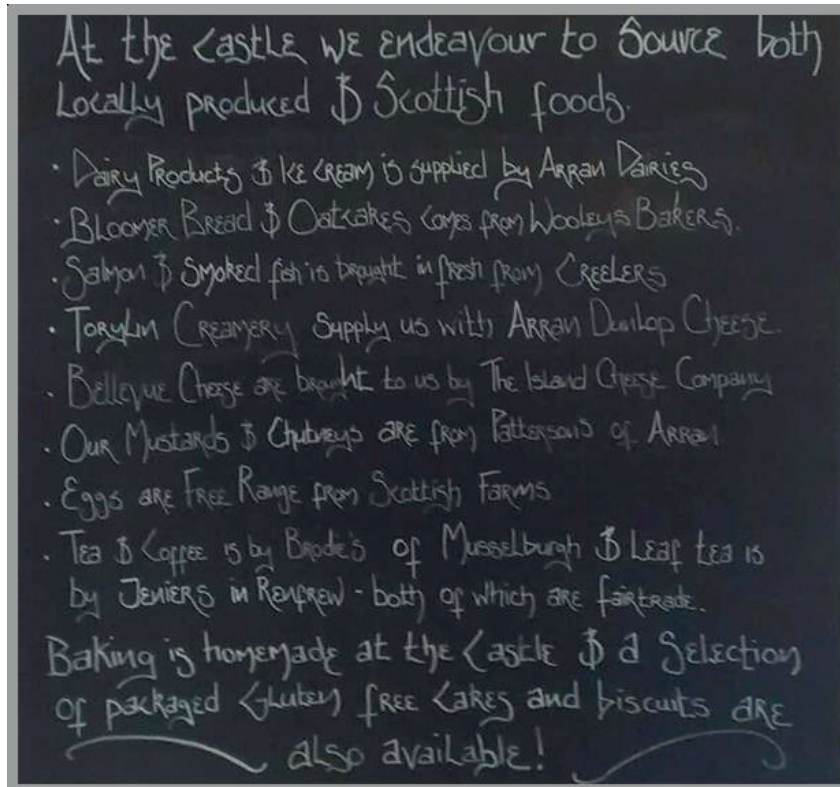 At the Castle we endeavour to Source both
Locally produced & Scottish foods.
· Dairy Products & Ice Cream is supplied by Arran Dairies
· Bloomer Bread & Oatcakes comes from Wooleys Bakers.
· Salmon & Smoked fish is brought in fresh from Creelers
· Torylin Creamery supply us with Arran Dunlop Cheese.
· Bellevue Cheese are brought to us by The Island Cheese Company
· Our Mustards & Chutneys are from Pattersons of Arran
· Eggs are Free Range from Scottish Farms
· Tea & Coffee is by Brodie's of Musselburgh & Leaf tea is
by Jeniers in Renfrew - both of which are fairtrade.
Baking is homemade at the Castle & a Selection
of packaged Gluten free Cakes and biscuits are
also available!